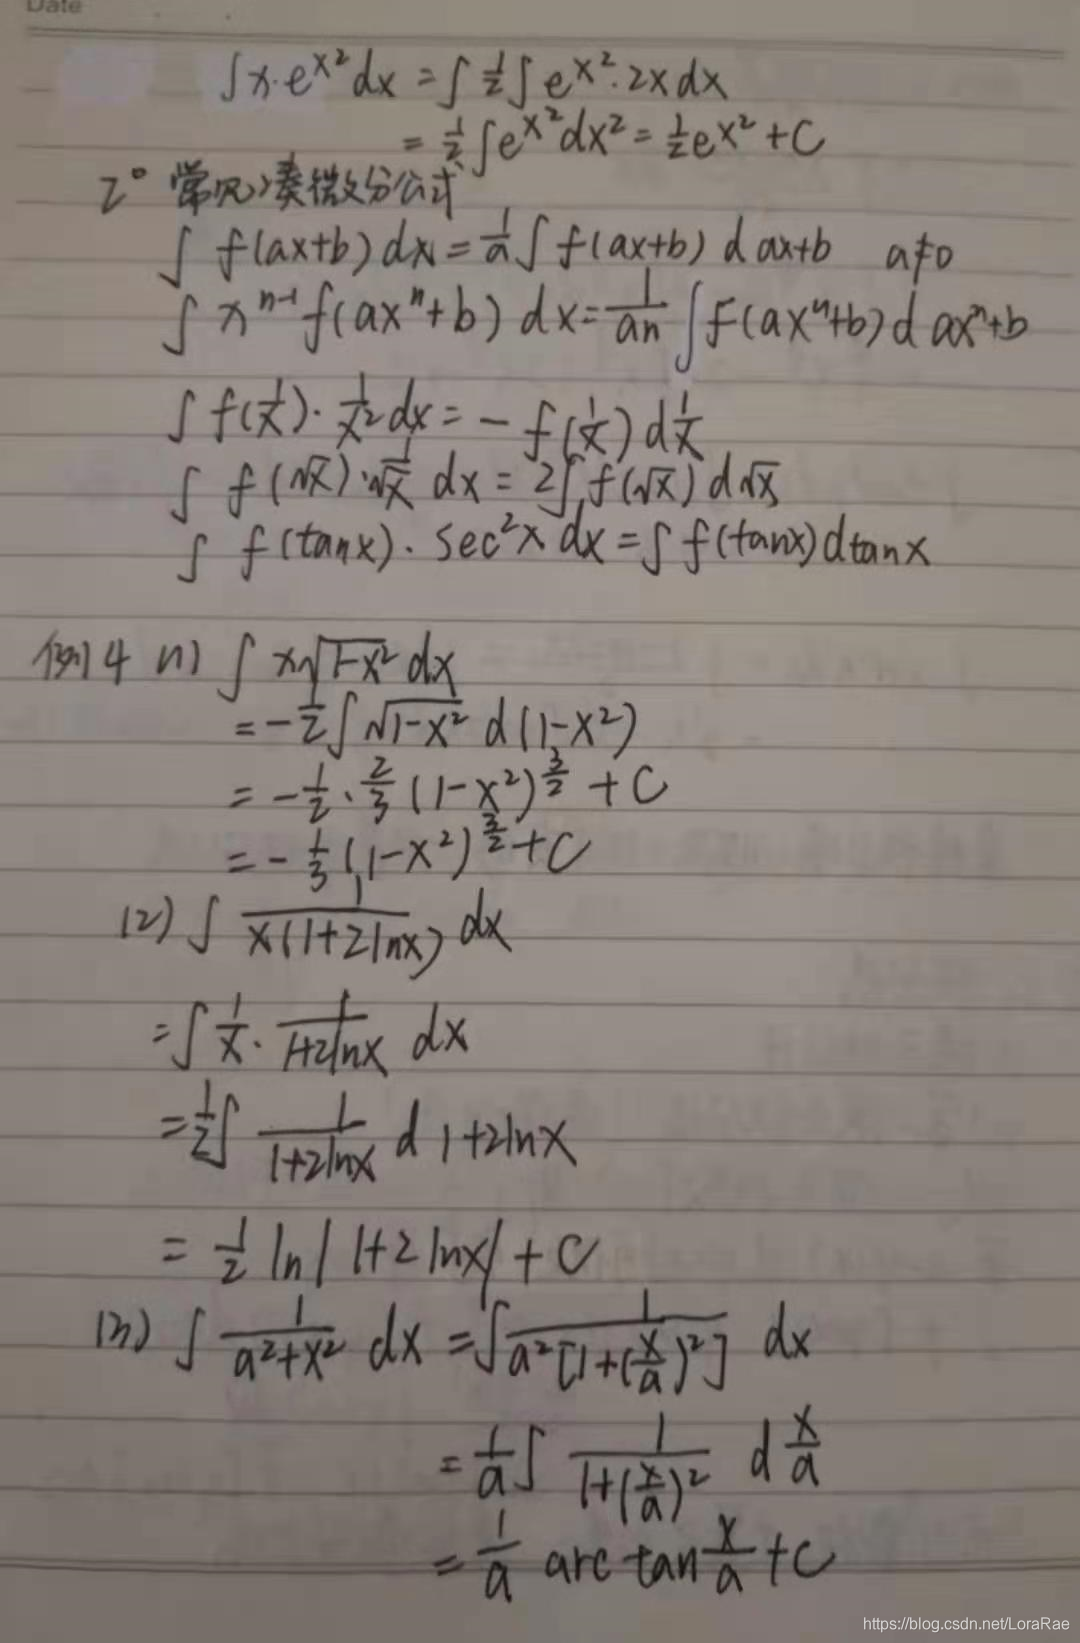 Date
∫x·e^{x²}dx = ∫½∫e^{x²}·2xdx
= ½∫e^{x²}dx² = ½e^{x²}+C
2° 常见凑微分公式
∫ f(ax+b) dx = 1/a ∫ f(ax+b) d ax+b a≠0
∫ x^{n-1} f(ax^n+b) dx = 1/(an) ∫ f(ax^n+b) d ax^n+b
∫ f(1/x)· 1/x² dx = - f(1/x) d 1/x
∫ f(√x)· 1/√x dx = 2∫ f(√x) d√x
∫ f(tanx)· sec²x dx = ∫ f(tanx) dtanx
例4 (1) ∫ x√(1-x²) dx
= -½∫ √(1-x²) d(1-x²)
= -½·⅔ (1-x²)^{3/2} + C
= -⅓ (1-x²)^{3/2} + C
(2) ∫ 1/(x(1+2lnx)) dx
= ∫ 1/x · 1/(1+2lnx) dx
= ½∫ 1/(1+2lnx) d 1+2lnx
= ½ ln|1+2lnx| + C
(3) ∫ 1/(a²+x²) dx = ∫ 1/(a²[1+(x/a)²]) dx
= 1/a ∫ 1/(1+(x/a)²) d x/a
= 1/a arctan x/a + C
https://blog.csdn.net/LoraRae